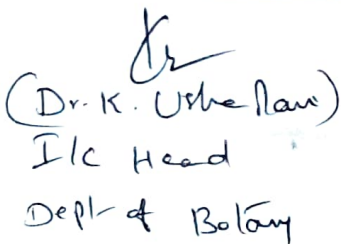 (Dr. K. Usha Rani)
I/c Head
Dept of Botany